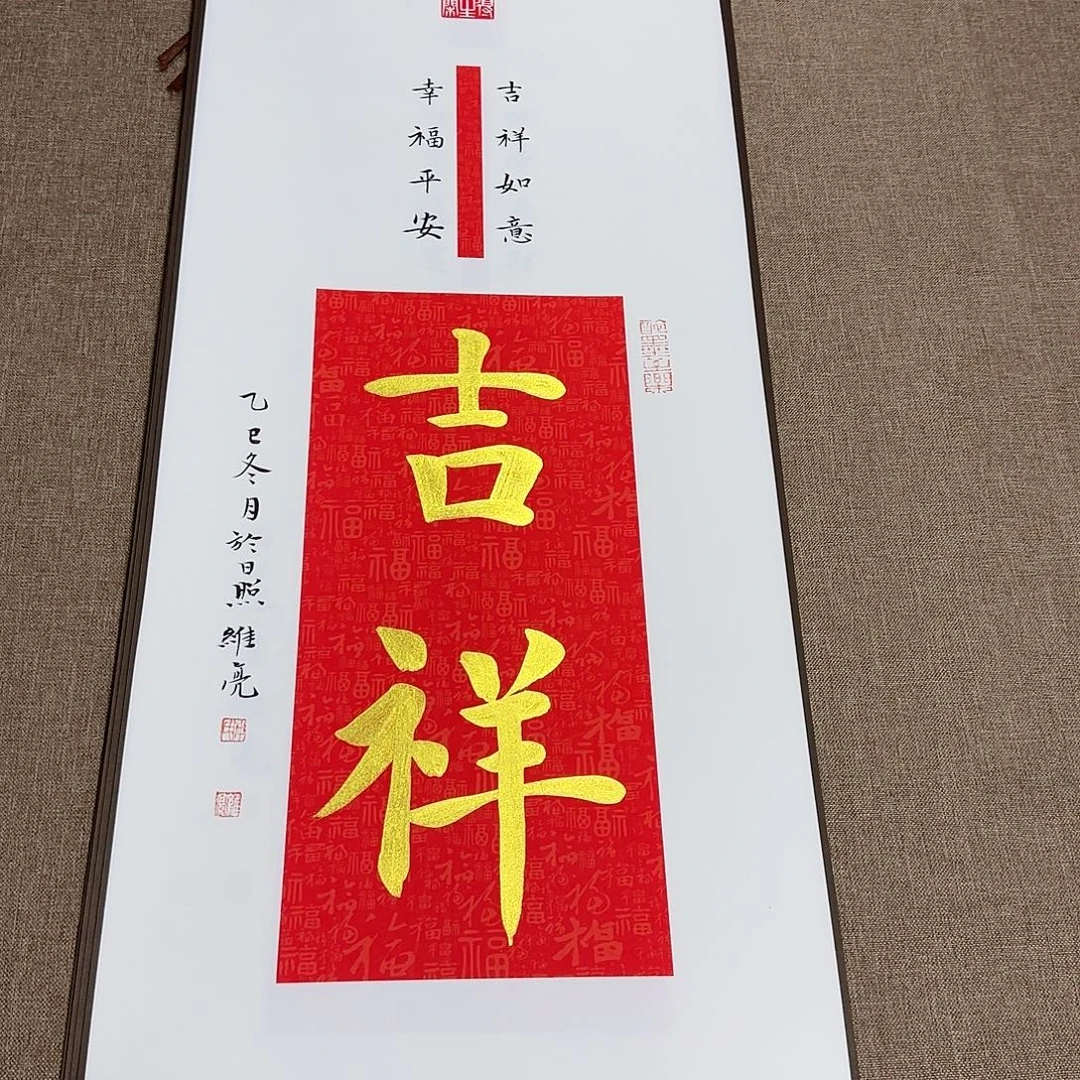 吉祥如意
幸福平安
吉祥
乙巳冬月於日照維亮